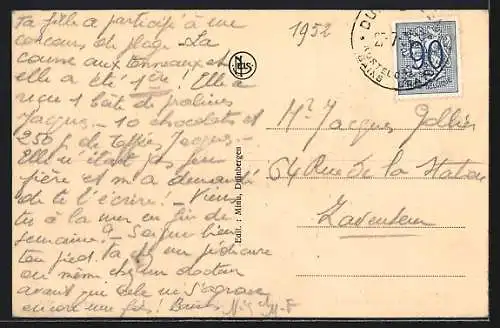 Ta fille a participé à une
concours de plage - La
course aux tonneaux et
elle a été 1ère! Elle a
reçu 1 boîte de pralines
Jacques - 10 chocolats et
250 g. de toffées Jacques -
Elle n'était pas peu
fière et m'a demandé
de te l'écrire! - Viens
tu à la mer en fin de
semaine? - Soigne bien
ton pied. Va un pédicure
ou même chez un docteur
avant que cela ne s'aggrave
encore une fois! Baisers M-F
1952
Edit.: Mina, Duinbergen
DU
90
BELGIE
Mr. Jacques Gollier
64 Rue de la Station
Zaventem